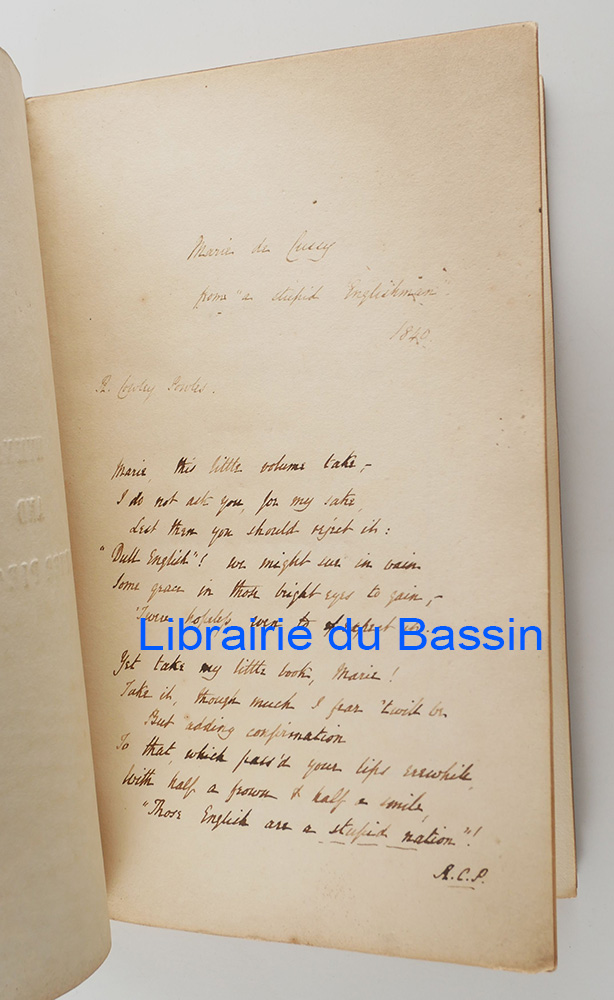 Marie de Cussy
from "a stupid Englishman"
1849.
R. Cowley Powles.
Marie, this little volume take,-
I do not ask you, for my sake,
Lest then you should reject it:
"Dull English"! we might sue in vain
Some grace in those bright eyes to gain,-
'Twere hopeless to expect it.
Librairie du Bassin
Yet take my little book, Marie!
Take it, though much I fear 'twill be
But adding confirmation
To that, which pass'd your lips erewhile,
With half a frown & half a smile,
"Those English are a stupid nation"!
R.C.P.